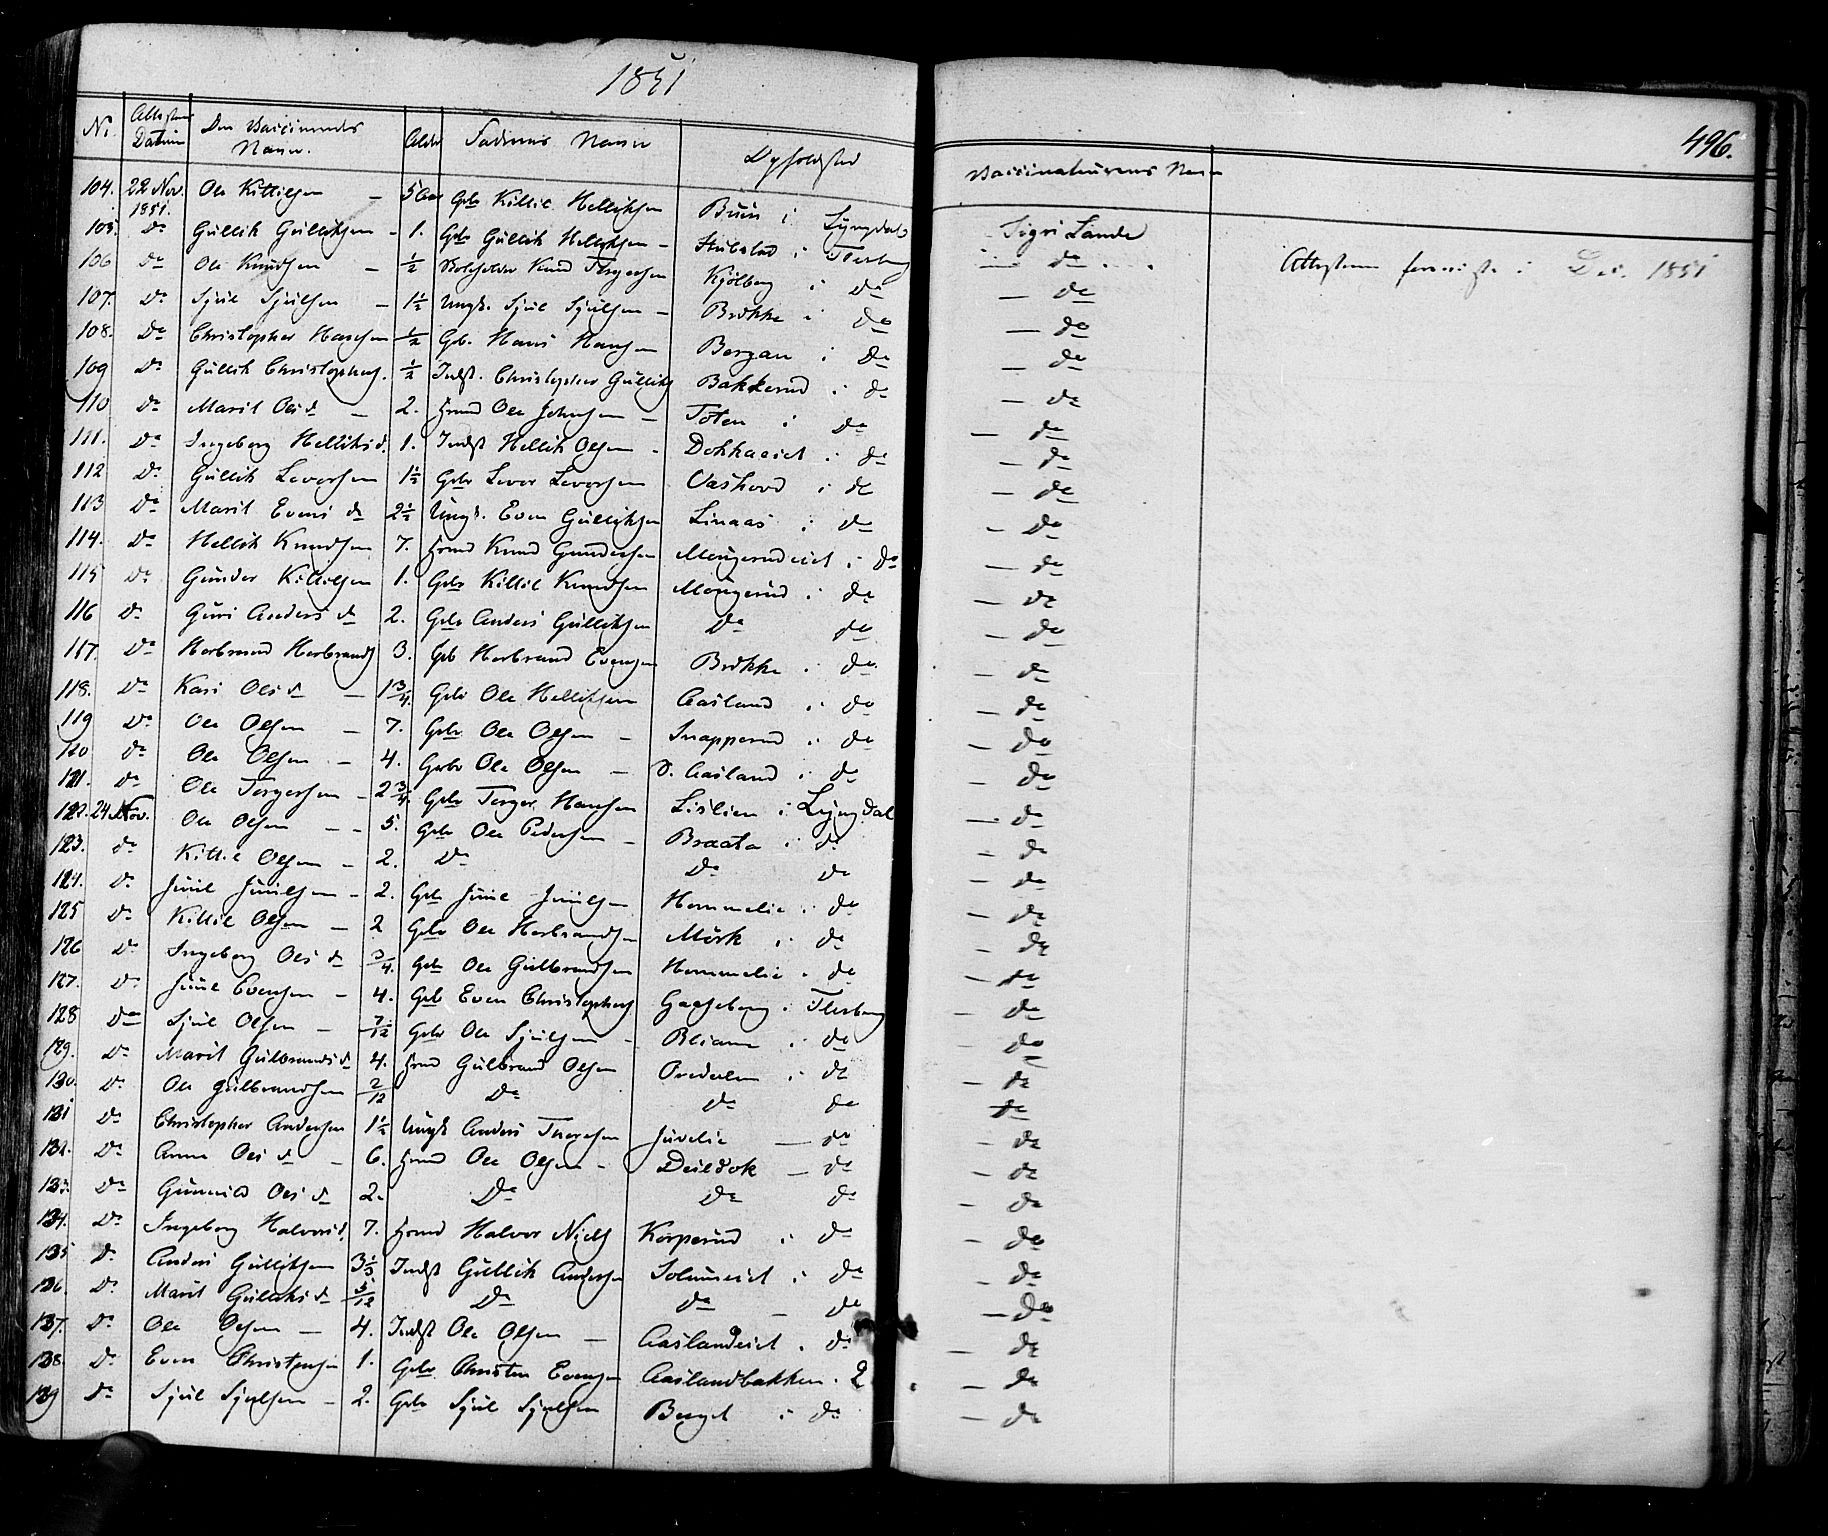 1851
496.
No. Attestens Datum Den Vaccineredes Navn. Alder Faderens Navn Opholdsted Vaccinateurens Navn
104. 22 Nov. 1851. Ole Kittilsen — 5 Aar Gbr Kittil Helliksen Buin i Lyngdal Sigri Lande
105. Do Gullik Gulliksen — 1. Gbr Gullik Helliksen — Stubstad i Flesberg do
Attesterne foreviste i Dec. 1851
106 do Ole Knudsen — ½ Knud Kjölberg i do — do
107. Do Sjul Sjulsen — 1½ Ungk. Sjul Sjulsen — Brökke i do — do
108. Do Christopher Hansen ½ Gb. Hans Hansen Bergan i do — do
109 Do Gullik Christophers. ½ Indst. Christopher Gulliks Bakkerud i do — do
110 Do Marit Olsd — 2. Hmd Ole Johnsen — Toten i do — do
111. Do Ingeborg Helliksd. 1. Indst Hellik Olsen — Dokkaeiet i do — do
112 Do Gullik Leversen 1½ Gbr Lever Leversen Aashovd i do — do
113 Do Marit Evensd 2½ Ungk. Even Gulliksen Linaas i do — do
114. Do Hellik Knudsen 7. Hmd Knud Gundersen Moügerudeiet i do — do
115 Do Gunder Kittilsen 1. Gbr Kittil Knudsen Moügerud i do — do
116 Do Guri Andersd 2. Gbr Anders Gulliksen Do do — do
117. Do Herbrand Herbrands 3. Gb Herbrand Evensen Brökke i do — do
118. Do Kari Olsd — 1¾ Gbr Ole Helliksen Aasland i do — do
119 Do Ole Olsen — 7. Gbr Ole Olsen — Snapperud i do — do
120 do Ole Olsen — 4. Gbr Ole Olsen — S. Aasland i do — do
121. do Ole Torgersen — 2¾ Gbr Torger Hansen Lislien i Lyngdal — do
122. 24 Nov. Ole Olsen — 5. Gbr Ole Pedersen — Braata i do — do
123. do Kittil Olsen — 2. Do Do do — do
124. do Juul Juulsen — 2. Gbr Juul Juulsen Hemmelie i do — do
125 Do Kittil Olsen — 2 Gbr Ole Herbrandsen Mörk i do — do
126 Do Ingeborg Olsd ¾. Gbr Ole Gulbrandsen Hemmelie i do — do
127. Do Juul Evensen — 4. Gbr Even Christophers Gaaseberg i Flesberg — do
128 Do Sjul Olsen — 7/12 Gbr Ole Sjulsen — i do — do
129. Do Marit Gulbrandsd 4. Hmd Gulbrand Olsen i do — do
130. Do Ole Gulbrandsen 2/12 Do Do do — do
131 Do Christopher Andersen 1½ Ungk Anders Juvelie — do — do
132. Do Anne Olsd — 6. Hmd Ole Olsen — Deildok — do — do
133. Do Gunnild Olsd 2. Do Do do — do
134. Do Ingeborg Halvorsd. 7. Hmd Halvor Niels Korperud i do — do
135 do Anders Gulliksen 3⅓ Indst Gullik Andersen i do — do
136. Do Marit Gulliksd 5/12 Do Do — do — do
137. Do Ole Olsen — 4. Indst Ole Olsen — Aaslandeiet i do — do
138. Do Even Christensen 1. Gbr Christen Evensen Aaslandbakken i — do
139 do Sjul Sjulsen — 2. Gbr Sjul Sjulsen Berget i do — do